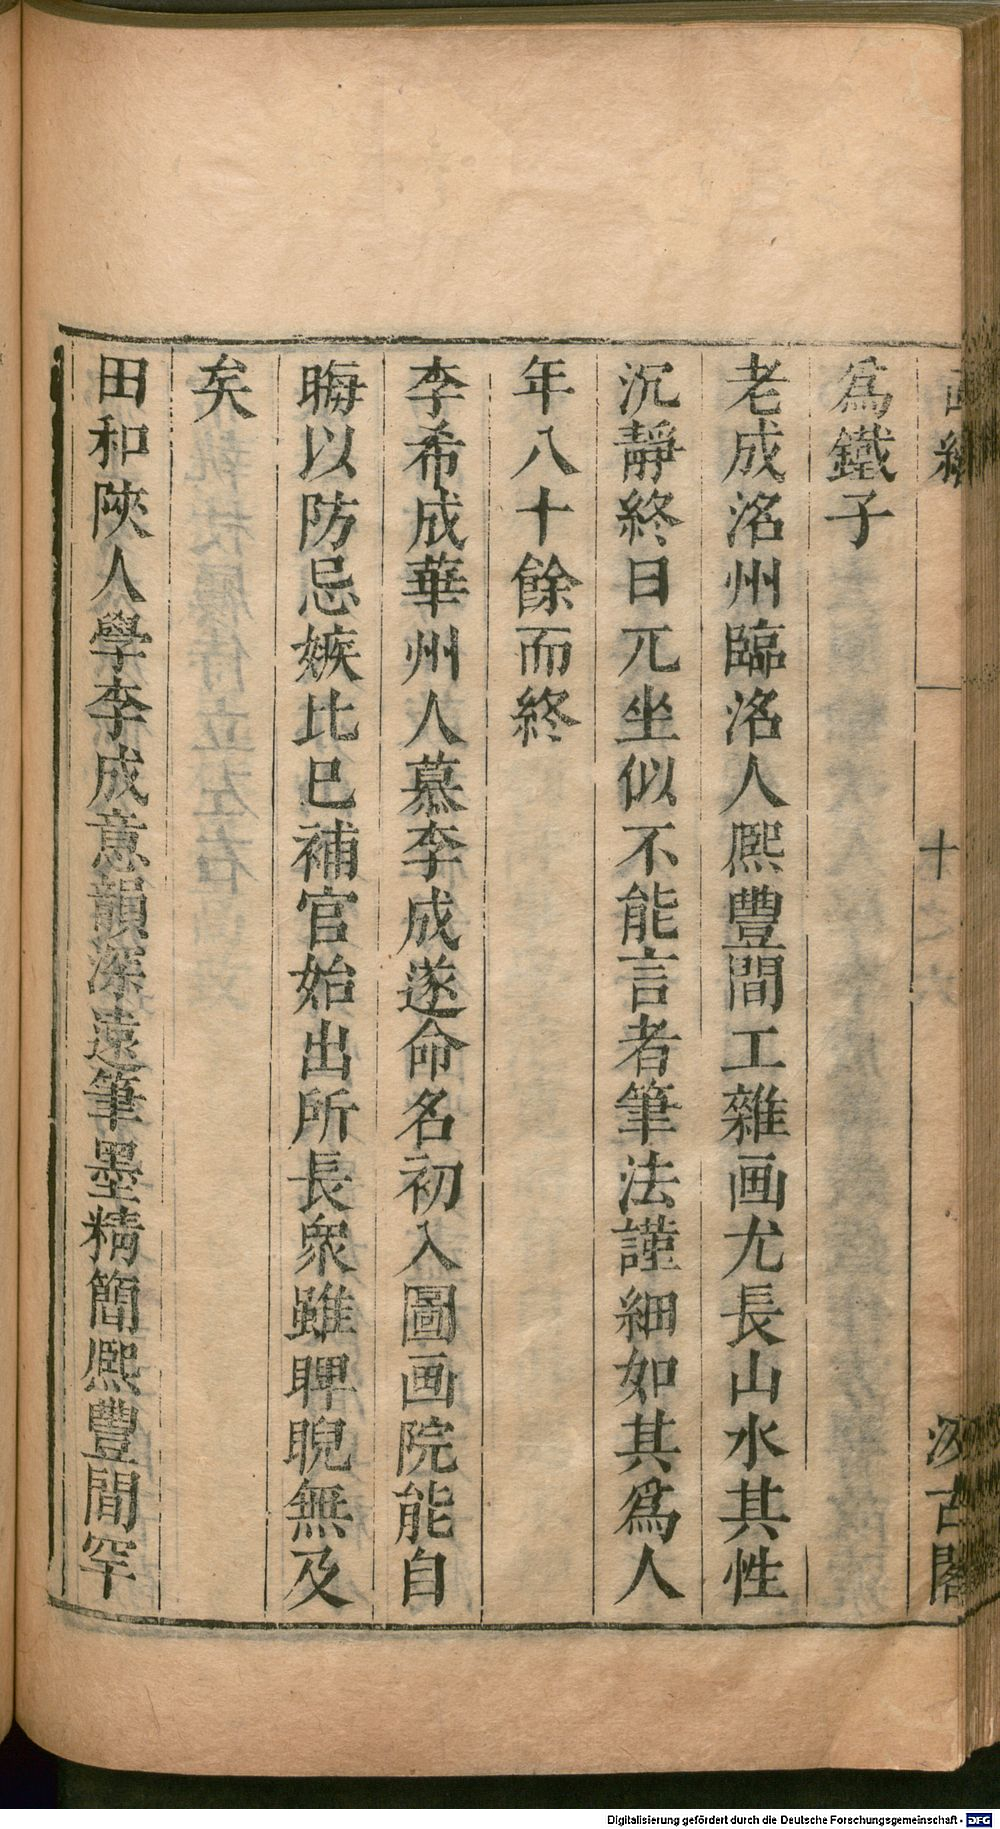 十
汲古閣
為鐵子
老成洺州臨洺人熈豐間工雜画尤長山水其性
沉靜終日兀坐似不能言者筆法謹細如其爲人
年八十餘而終
李希成華州人慕李成遂命名初入圖画院能自
晦以防忌嫉比巳補官始出所長衆雖睥睨無及
矣
田和陝人學李成意韻深遠筆墨精簡熈豐間罕
Digitalisierung gefördert durch die Deutsche Forschungsgemeinschaft - DFG